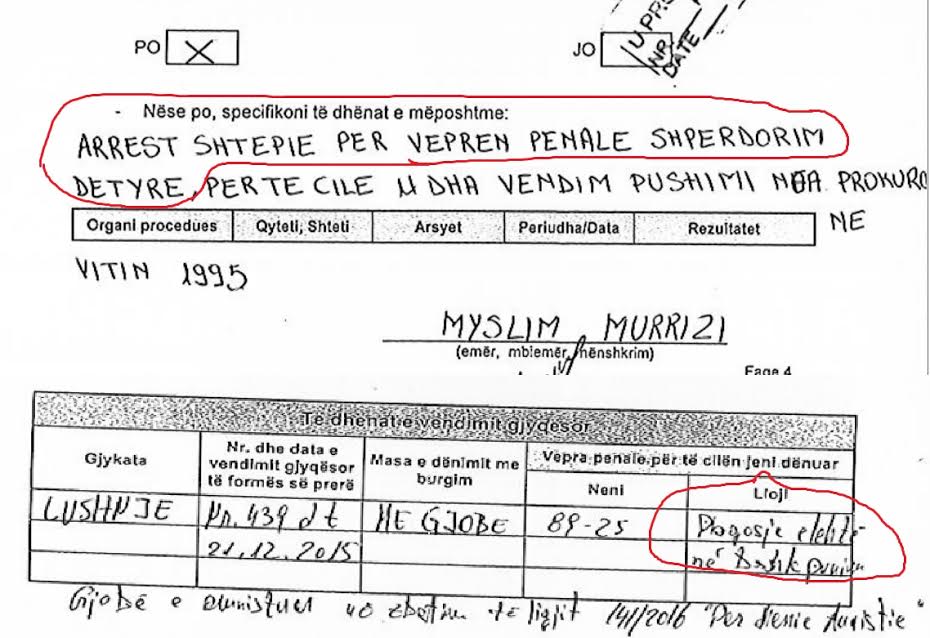 PO X JO U PRO
NR.
DATE
- Nëse po, specifikoni të dhënat e mëposhtme:
ARREST SHTEPIE PER VEPREN PENALE SHPERDORIM
DETYRE, PER TE CILE U DHA VENDIM PUSHIMI NGA PROKURO
Organi procedues Qyteti, Shteti Arsyet Periudha/Data Rezultatet NE
VITIN 1995
MYSLIM MURRIZI
(emër, mbiemër, nënshkrim)
Faqe 4
Të dhënat e vendimit gjyqësor
Gjykata Nr. dhe data e vendimit gjyqësor të formës së prerë Masa e dënimit me burgim Vepra penale për të cilën jeni dënuar
Neni Lloji
LUSHNJE Nr. 439 dt ME GJOBE 89-25 Plagosje e lehtë
21.12.2015 në bashkpunim
Gjobë e amnistuar në zbatim të ligjit 141/2016 "Per dienie Amistie"